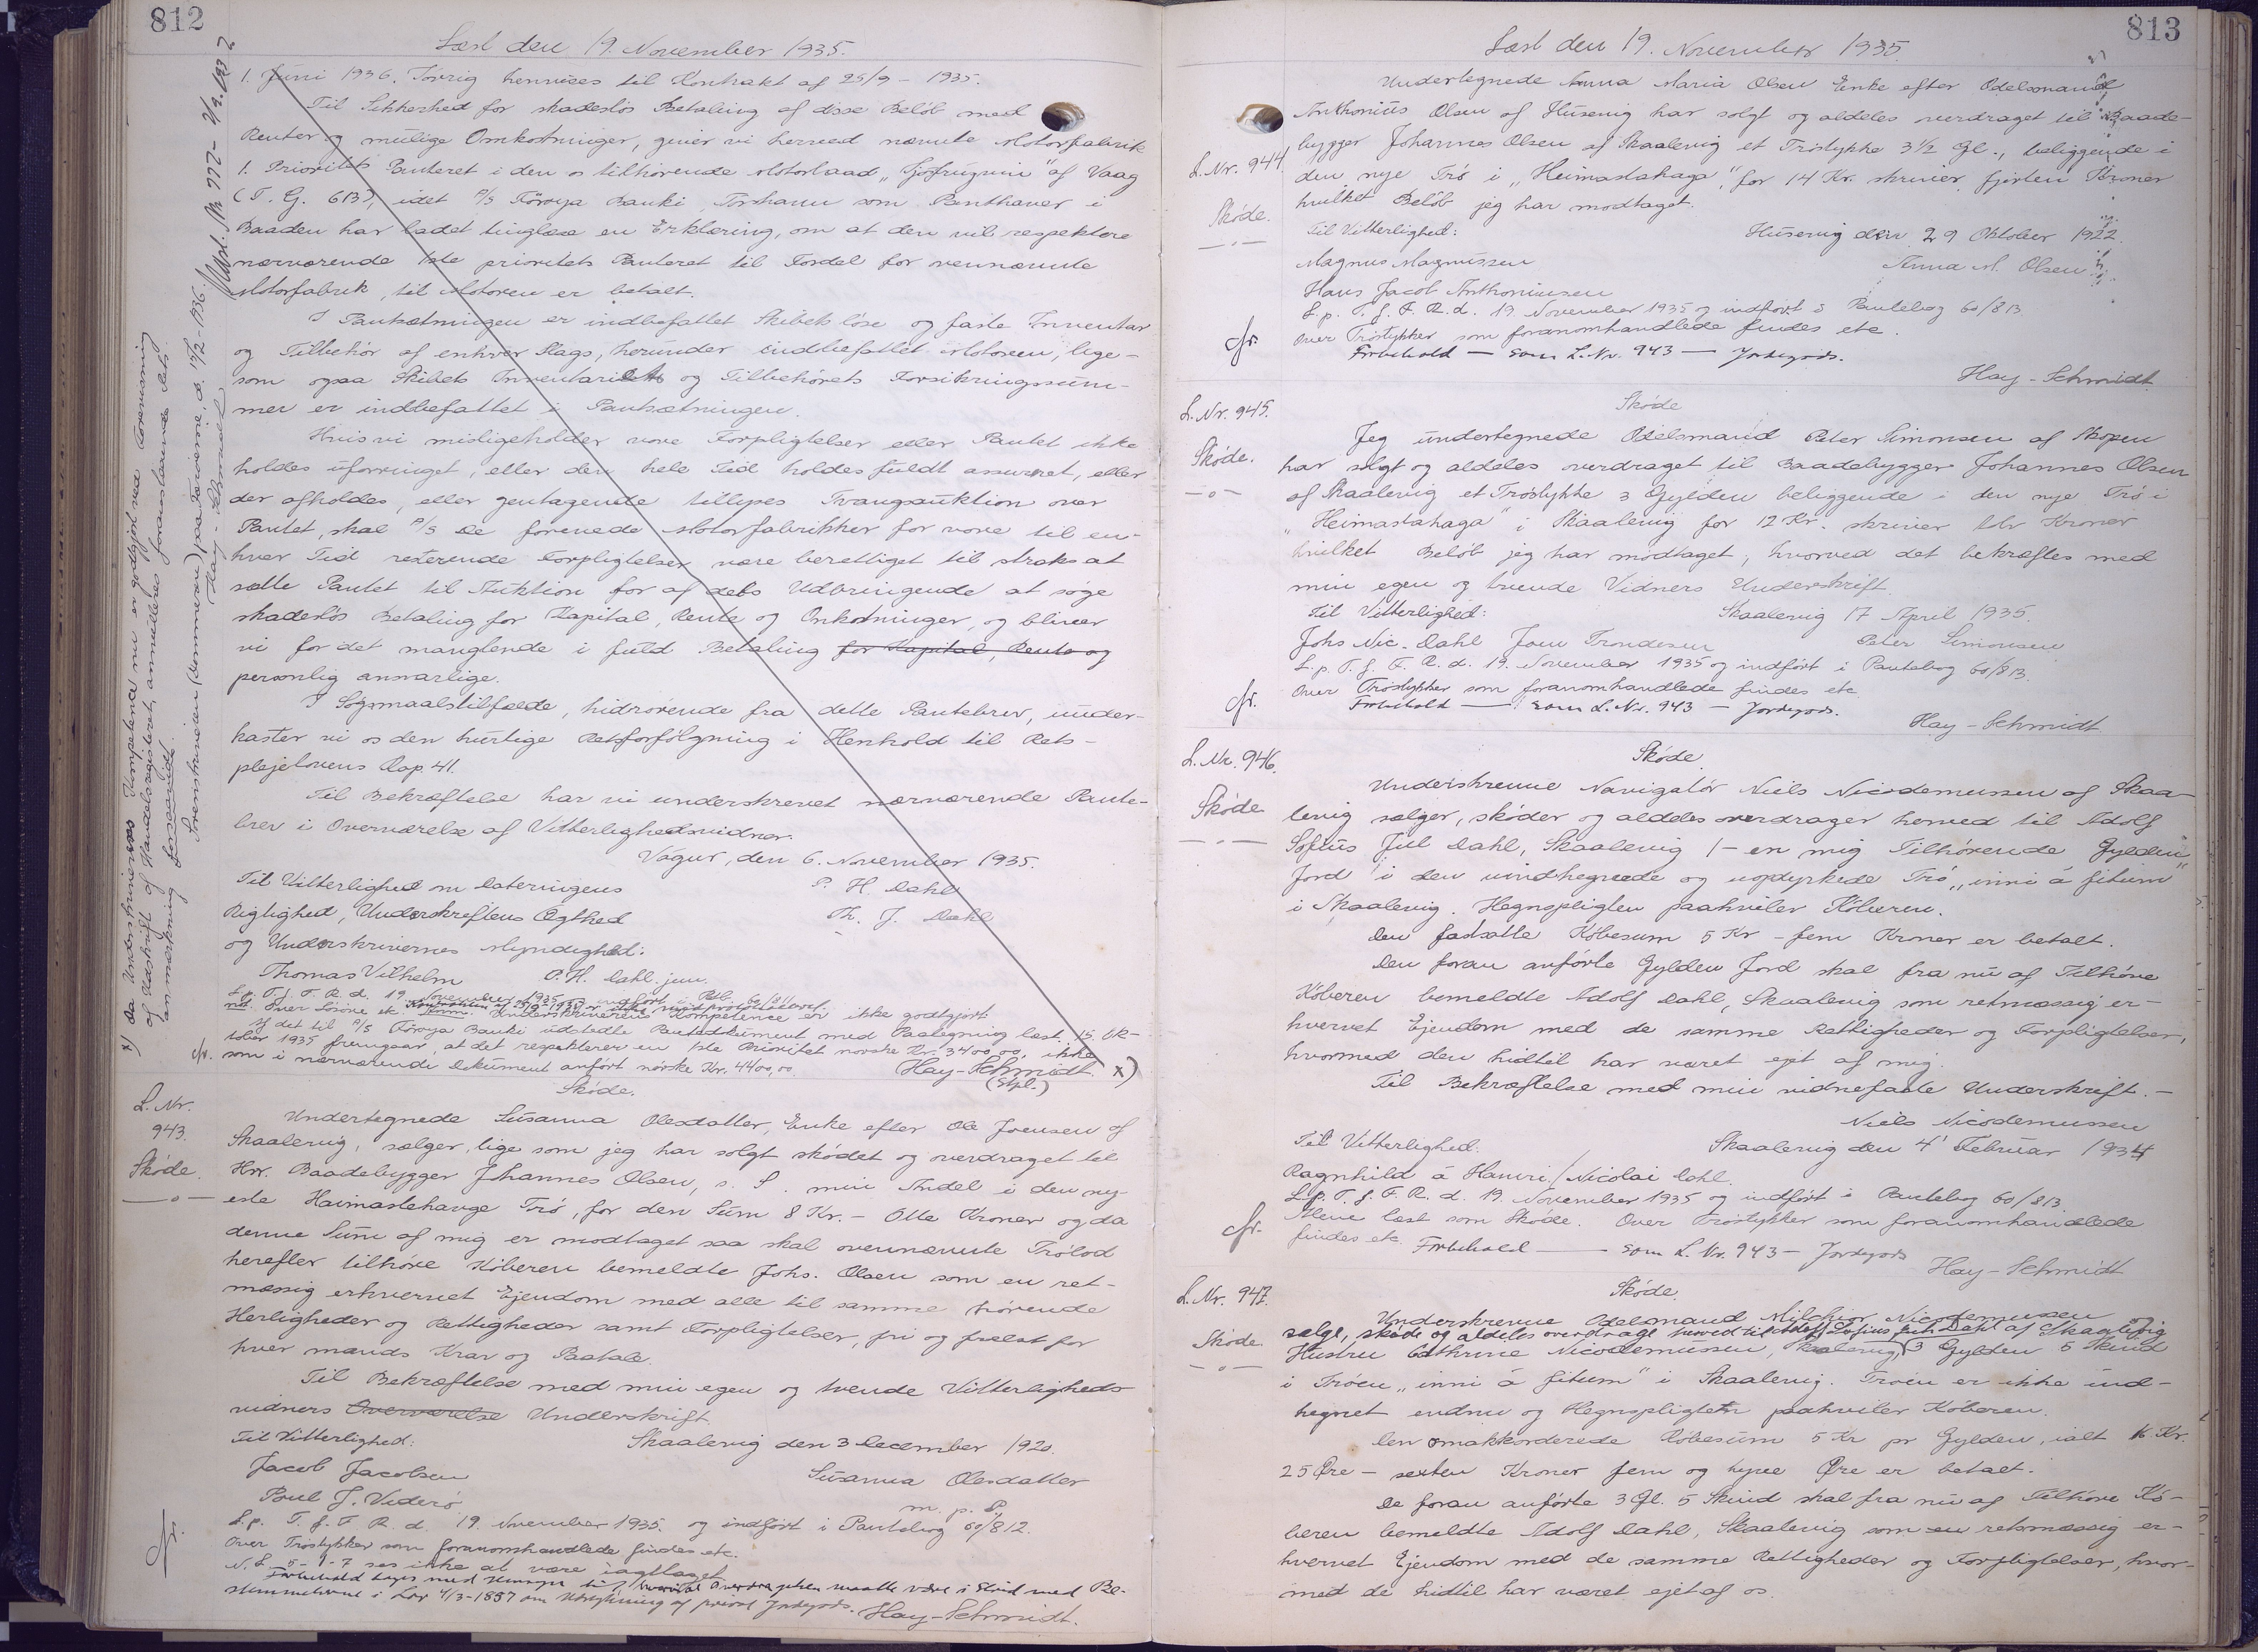 812
Læst den 19. November 1935.
1. Juni 1936. Iøvrig henvises til Kontrakt af 25/9 - 1935.
Til Sikkerhed for skadesløs Betaling af disse Beløb med
Renter og mulige Omkostninger, giver vi herved nævnte Motorfabrik
1. Prioritets Panteret i den os tilhørende Motorbaad af Vaag
(T. G. 613), idet A/S Föroya Banki, Torshavn som Panthaver i
Baaden har ladet tinglæse en Erklæring, om at den vil respektere
nærværende 1ste prioritets Panteret til Fordel for nævnte
Motorfabrik, til Motoren er betalt.
I Pantsætningen er indbefattet Skibets løse og faste Inventar
og Tilbehør af enhver Slags, herunder indbefattet Motoren, lige-
som ogsaa Skibets Inventariets og Tilbehørets Forsikringssum-
mer er indbefattet i Pantsætningen.
Hvis vi misligeholder vore Forpligtelser eller Pantet ikke
holdes uforringet, eller den hele Tid holdes fuldt assureret, eller
der afholdes, eller gentagende tillyses Tvangsauktion over
Pantet, skal A/S De forenede Motorfabrikker for vore til en-
hver Tid resterende Forpligtelser være berettiget til straks at
sætte Pantet til Auktion for af dets Udbringende at søge
skadesløs Betaling for Kapital, Rente og Omkostninger, og bliver
vi for det manglende i fuld Betaling for Kapital, Rente og
personlig ansvarlige.
I Søgsmaalstilfælde, hidrørende fra dette Pantebrev, under-
kaster vi os den hurtige Retsforfølgning i Henhold til Rets-
plejelovens Kap. 41.
Til Bekræftelse har vi underskrevet nærværende Pante-
brev i Overværelse af Vitterlighedsvidner.
Vágur, den 6. November 1935.
Til Vitterlighed om Dateringens P. H. Dahl
Rigtighed, Underskriftens Ægthed Th. J. Dahl
og Underskrivernes Myndighed:
Thomas Vilhelm P. H. Dahl jun.
L. p. T. f. F. R. d. 19. November 1935 og indført i Ptb. 60/811
Underskrivernes Kompetence er ikke godtgjort
Af det til A/S Föroya Banki udstedte Pantedokument med Paategning læst 15. Ok-
tober 1935 fremgaar, at det respekterer en 1ste Prioritet norske Kr. 3400,00, ikke
cfr. som i nærværende Dokument anført norske Kr. 4400,00. Hay-Schmidt. x)
(Stpl.)
x) Da Underskrivernes Kompetence nu er godtgjort ved Forevisning
af Udskrift af Handelsregisteret, annulleres foranstaaende Rets
anmærkning forsaavidt.
Sorenskriveren (Dommeren) paa Færøerne, d. 13/2-1936.
Hay-Schmidt
L. Nr.
943.
Skøde.
Skøde.
Undertegnede Susanna Olesdatter, Enke efter Ole Joensen af
Skaalevig, sælger, lige som jeg har solgt skødet og overdraget til
Hr. Baadebygger Johannes Olsen, s. S. min Andel i den ny-
este Haimastehauge Trø, for den Sum 8 Kr. - Otte Kroner og da
denne Sum af mig er modtaget saa skal ovennævnte Trølod
herefter tilhøre Køberen bemeldte Johs. Olsen som en ret-
mæssig erhvervet Ejendom med alle til samme hørende
Herligheder og Rettigheder samt Forpligtelser, fri og frelst for
hver mands Krav og Paatale.
Til Bekræftelse med min egen og tvende Vitterligheds-
vidners Overværelse Underskrift.
Til Vitterlighed: Skaalevig den 3 December 1920.
Jacob Jacobsen Susanna Olesdatter
Poul J. Viderø m. p. P.
L. p. T. f. F. R. d. 19. November 1935. og indført i Pantebog 60/812.
Over Trøstykker som foranomhandlede findes etc.
N. L. 5-1-7 ses ikke at være iagttaget
Forbehold tages med Hensyn til, hvorvidt Overdragelsen maatte være i Strid med Be-
stemmelserne i Lov 4/3-1857 om Udstykning af privat Jordegods. Hay-Schmidt.
813
Læst den 19. November 1935.
L. Nr. 944
Skøde.
Undertegnede Anna Maria Olsen Enke efter Odelsmand
Anthonius Olsen af Husevig har solgt og aldeles overdraget til Baade-
bygger Johannes Olsen af Skaalevig et Trøstykke 3 1/2 Gl., beliggende i
den nye Trø i „Heimastahaga“, for 14 Kr. skriver fjorten Kroner
hvilket Beløb jeg har modtaget.
Til Vitterlighed: Husevig den 29 Oktober 1922.
Magnus Magnussen Anna M. Olsen
Hans Jacob Anthoniussen
L. p. T. f. F. R. d. 19. November 1935 og indført i Pantebog 60/813.
Over Trøstykker som foranomhandlede findes etc.
cfr. Forbehold — som L. Nr. 943 — Jordegods.
Hay-Schmidt
L. Nr. 945.
Skøde.
Skøde
Jeg undertegnede Odelsmand Peter Simonsen af Skopen
har solgt og aldeles overdraget til Baadebygger Johannes Olsen
af Skaalevig et Trøstykke 3 Gylden beliggende i den nye Trø i
„Heimastahaga“ i Skaalevig for 12 Kr. skriver tolv Kroner
hvilket Beløb jeg har modtaget, hvorved det bekræftes med
min egen og tvende Vidners Underskrift.
Til Vitterlighed: Skaalevig 17 April 1935.
Johs Nic. Dahl Joen Trondesen Peter Simonsen
L. p. T. f. F. R. d. 19. November 1935 og indført i Pantebog 60/813.
Over Trøstykker som foranomhandlede findes etc.
cfr. Forbehold — som L. Nr. 943 — Jordegods.
Hay-Schmidt
L. Nr. 946.
Skøde
Skøde
Underskrevne Navigatør Niels Nicodemussen af Skaa-
levig sælger, skøder og aldeles overdrager herved til Adolf
Sofius Juul Dahl, Skaalevig 1 - en mig Tilhørende Gylden
Jord i den uindhegnede og uopdyrkede Trø „inni á fitum“
i Skaalevig. Hegnspligten paahviler Køberen.
Den fastsatte Købesum 5 Kr - fem Kroner er betalt.
Den foran anførte Gylden Jord skal fra nu af Tilhøre
Køberen bemeldte Adolf Dahl, Skaalevig som retmæssig er-
hvervet Ejendom med de samme Rettigheder og Forpligtelser,
hvormed den hidtil har været ejet af mig.
Til Bekræftelse med min vidnefaste Underskrift. -
Niels Nicodemussen
Til Vitterlighed: Skaalevig den 4' Februar 1934
Ragnhild á Hamri / Nicolai Dahl.
L. p. T. f. F. R. d. 19. November 1935 og indført i Pantebog 60/813
Alene læst som Skøde. Over Trøstykker som foranomhandlede
cfr. findes etc. Forbehold — som L. Nr. 943 — Jordegods
Hay-Schmidt
L. Nr. 947.
Skøde.
Skøde.
Underskrevne Odelsmand Milchior Nicodemussen
sælge, skøde og aldeles overdrage herved til Adolf Sofius Juul Dahl af Skaalevig
Hustru Cathrine Nicodemussen, Skaalevig, 3 Gylden 5 Skind
i Trøen „inni á fitum“ i Skaalevig. Trøen er ikke ind-
hegnet endnu og Hegnspligten paahviler Køberen.
Den omakkorderede Købesum 5 Kr pr Gylden, ialt 16 Kr.
25 Øre - sexten Kroner fem og tyve Øre er betalt.
De foran anførte 3 Gl. 5 Skind skal fra nu af Tilhøre Kø-
beren bemeldte Adolf Dahl, Skaalevig som en retsmæssig er-
hvervet Ejendom med de samme Rettigheder og Forpligtelser, hvor-
med de hidtil har været ejet af os.